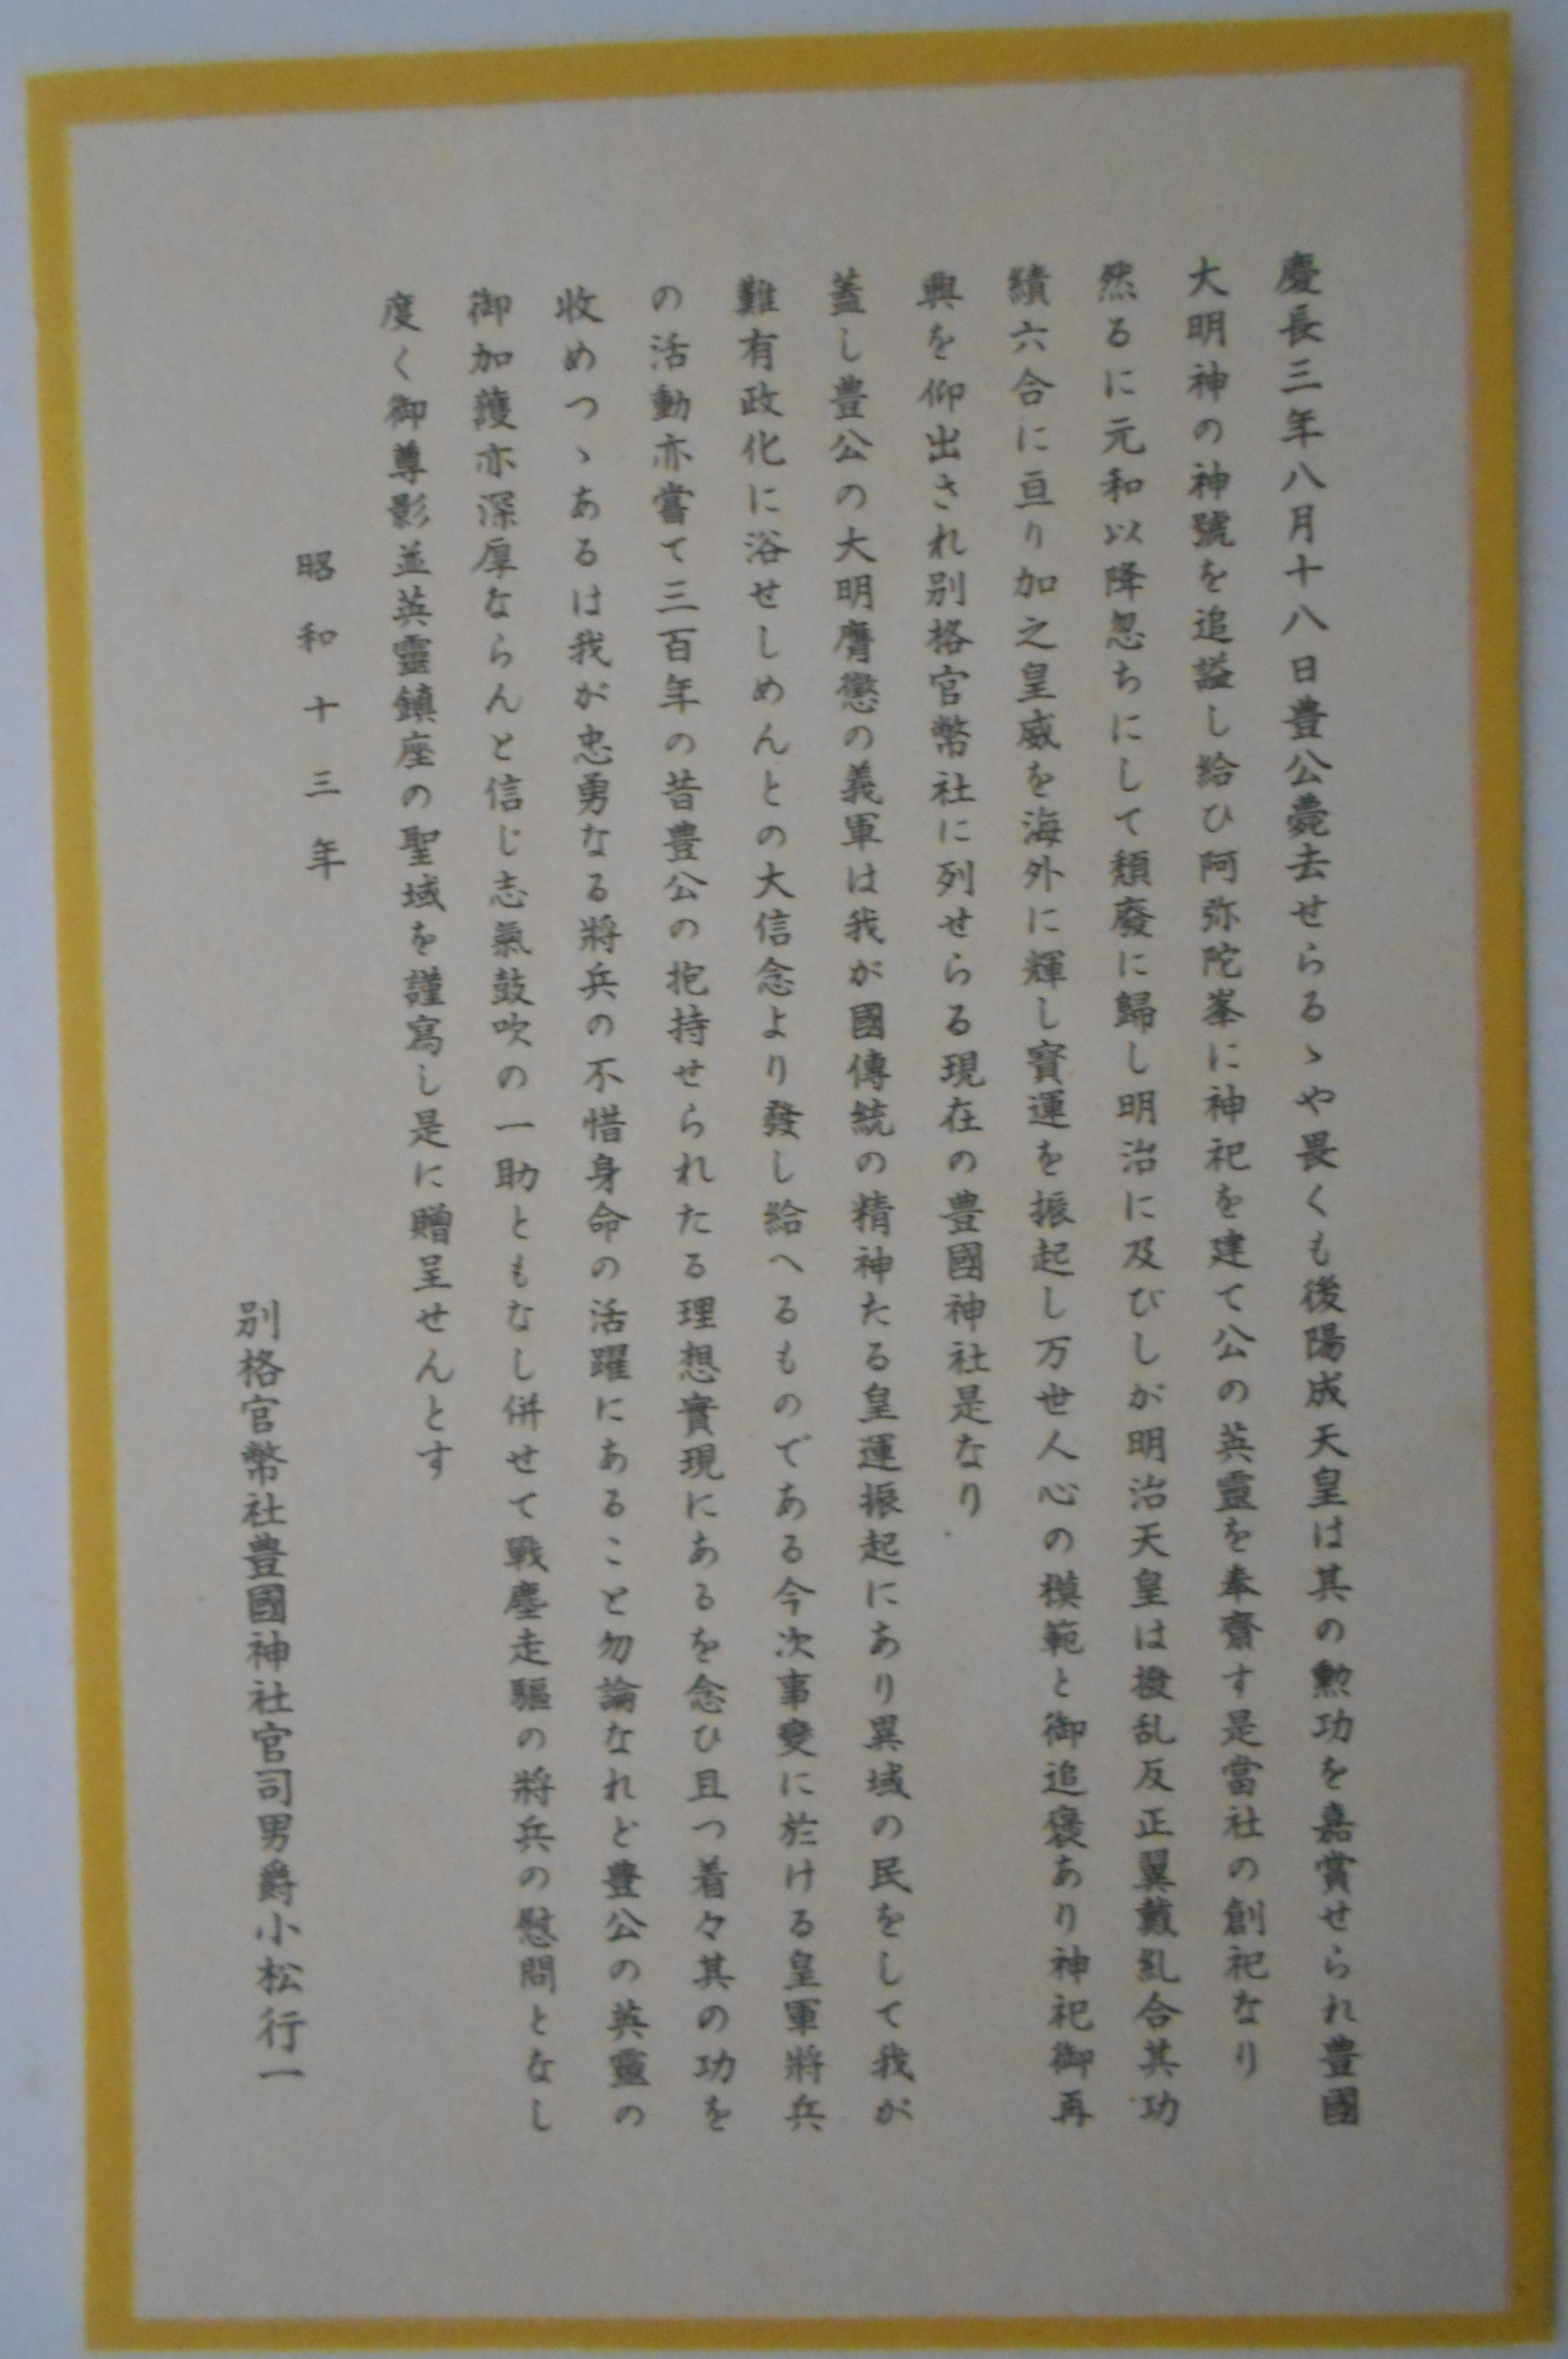 慶長三年八月十八日豊公薨去せらるゝや畏くも後陽成天皇は其の勲功を嘉賞せられ豊國
大明神の神號を追謚し給ひ阿弥陀峯に神祀を建て公の英靈を奉齋す是當社の創祀なり
然るに元和以降忽ちにして頽廢に歸し明治に及びしが明治天皇は撥乱反正翼戴糺合其功
績六合に亘り加之皇威を海外に輝し寶運を振起し万世人心の模範と御追褒あり神祀御再
興を仰出され別格官幣社に列せらる現在の豊國神社是なり
蓋し豊公の大明膺懲の義軍は我が國傳統の精神たる皇運振起にあり異域の民をして我が
難有政化に浴せしめんとの大信念より發し給へるものである今次事變に於ける皇軍將兵
の活動亦嘗て三百年の昔豊公の抱持せられたる理想實現にあるを念ひ且つ着々其の功を
收めつゝあるは我が忠勇なる將兵の不惜身命の活躍にあること勿論なれど豊公の英靈の
御加護亦深厚ならんと信じ志氣鼓吹の一助ともなし併せて戰塵走驅の將兵の慰問となし
度く御尊影並英靈鎮座の聖域を謹寫し是に贈呈せんとす
昭和十三年
別格官幣社豊國神社官司男爵小松行一